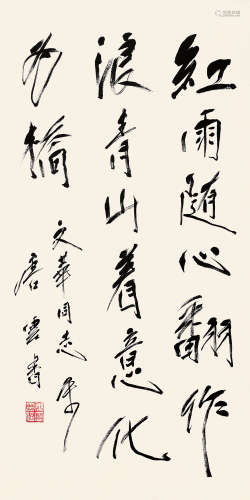 紅雨随心翻作
浪青山着意化
为橋
文華同志属
唐雲書